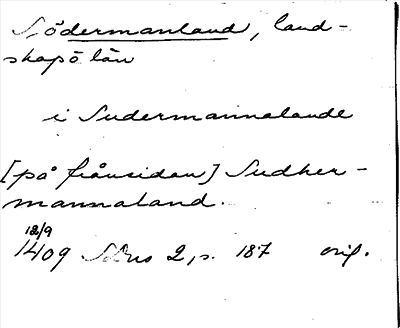 Södermanland, land-
skap o län
i Sudermannalande
[på frånsidan] Sudher-
mannaland.
12/9
1409 SDns 2, s. 187 orig.